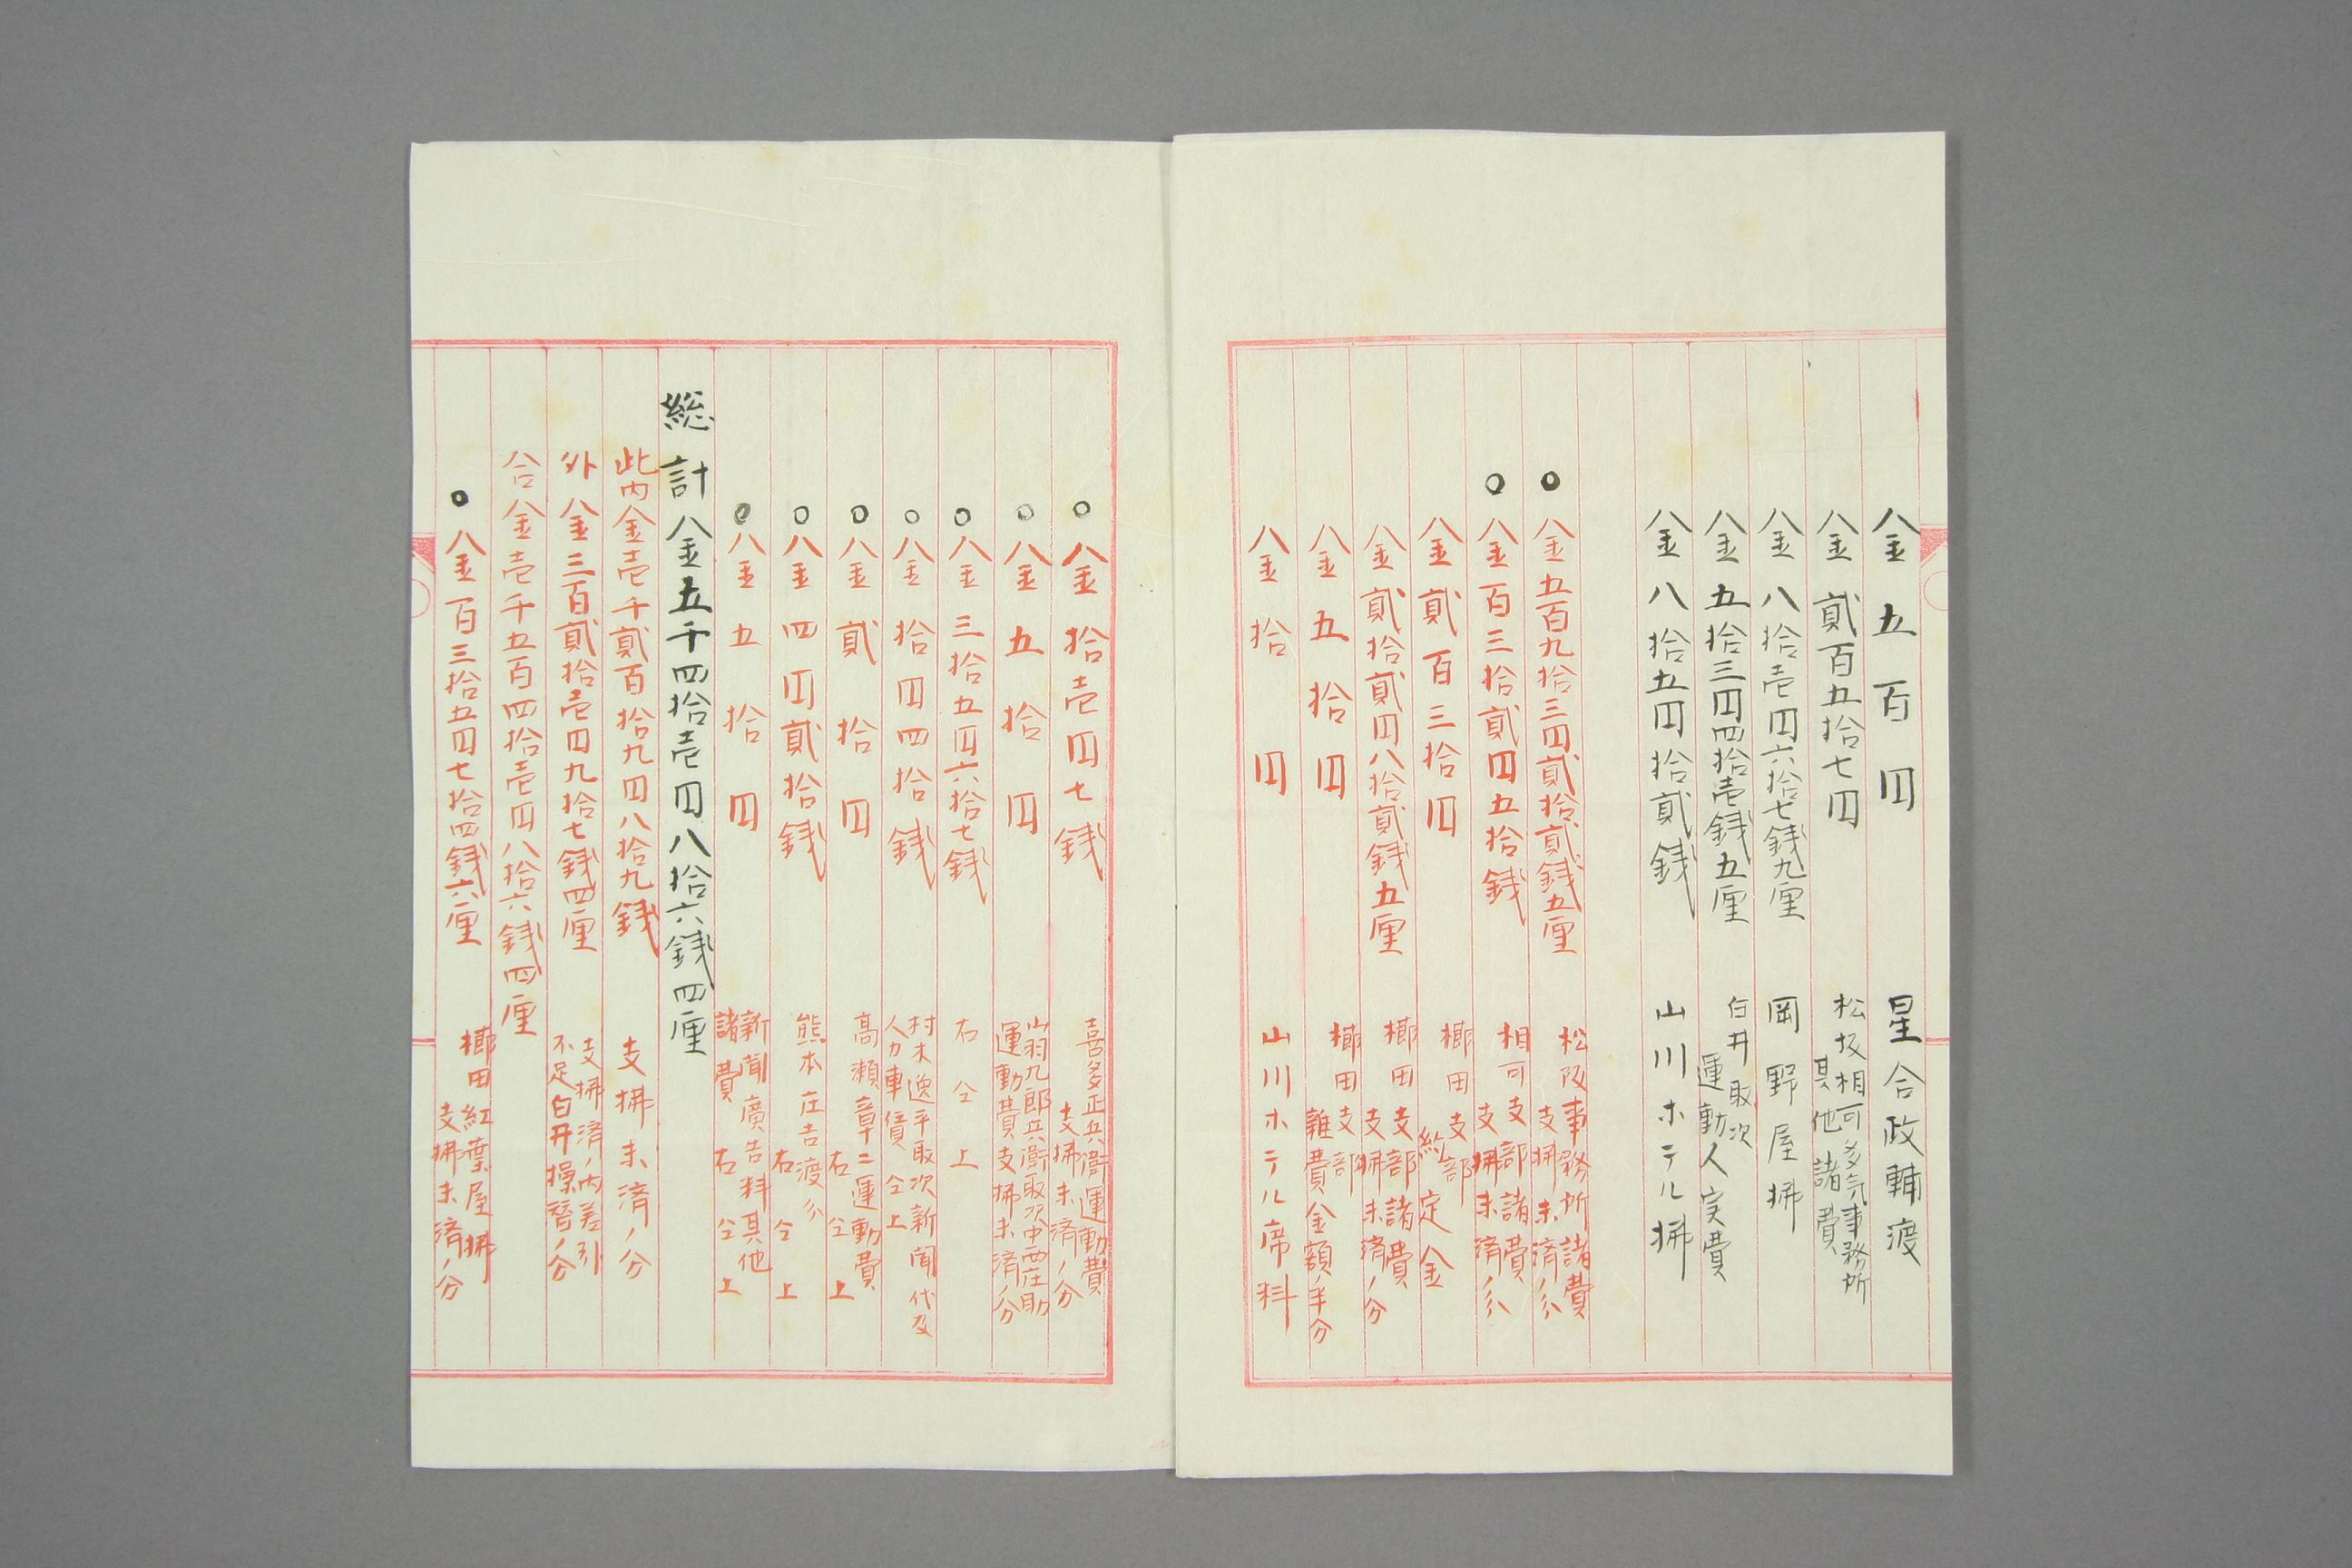 一金五百円 星合政輔渡
一金貳百五拾七円 松坂相可多気事務所其他諸費
一金八拾壱円六拾七銭九厘 岡野屋拂
一金五拾三円四拾壱銭五厘 白井取次運動人実費
一金八拾五円拾貳銭 山川ホテル拂
○一金五百九拾三円貳拾貳銭五厘 松阪事務所諸費支拂未済ノ分
○一金百三拾貳円五拾銭 相可支部諸費支拂未済ノ分
一金貳百三拾円 櫛田支部約定金
一金貳拾貳円八拾貳銭五厘 櫛田支部諸費支拂未済ノ分
一金五拾円 櫛田支部雑費金額ノ半分
一金拾円 山川ホテル席料
○一金拾壱円七銭 喜多正兵衛運動費支拂未済ノ分
○一金五拾円 九郎兵衛取次中西庄助運動費支拂未済ノ分
○一金三拾五円六拾七銭 右仝上
○一金拾四円四拾銭 村木逸平取次新聞代及人力車賃仝上
○一金貳拾円 高瀬章二運動費右仝上
○一金四円貳拾銭 熊本庄吉渡分右仝上
○一金五拾円 新聞廣告料其他諸費右仝上
総計一金五千四拾壱円八拾六銭四厘
此内金壱千貳百拾九円八拾九銭 支拂未済ノ分
外一金三百貳拾壱円九拾七銭四厘 支拂済ノ内差引不足白井操替ノ分
合金壱千五百四拾壱円八拾六銭四厘
○一金百三拾五円七拾四銭六厘 櫛田紅葉屋拂支拂未済ノ分